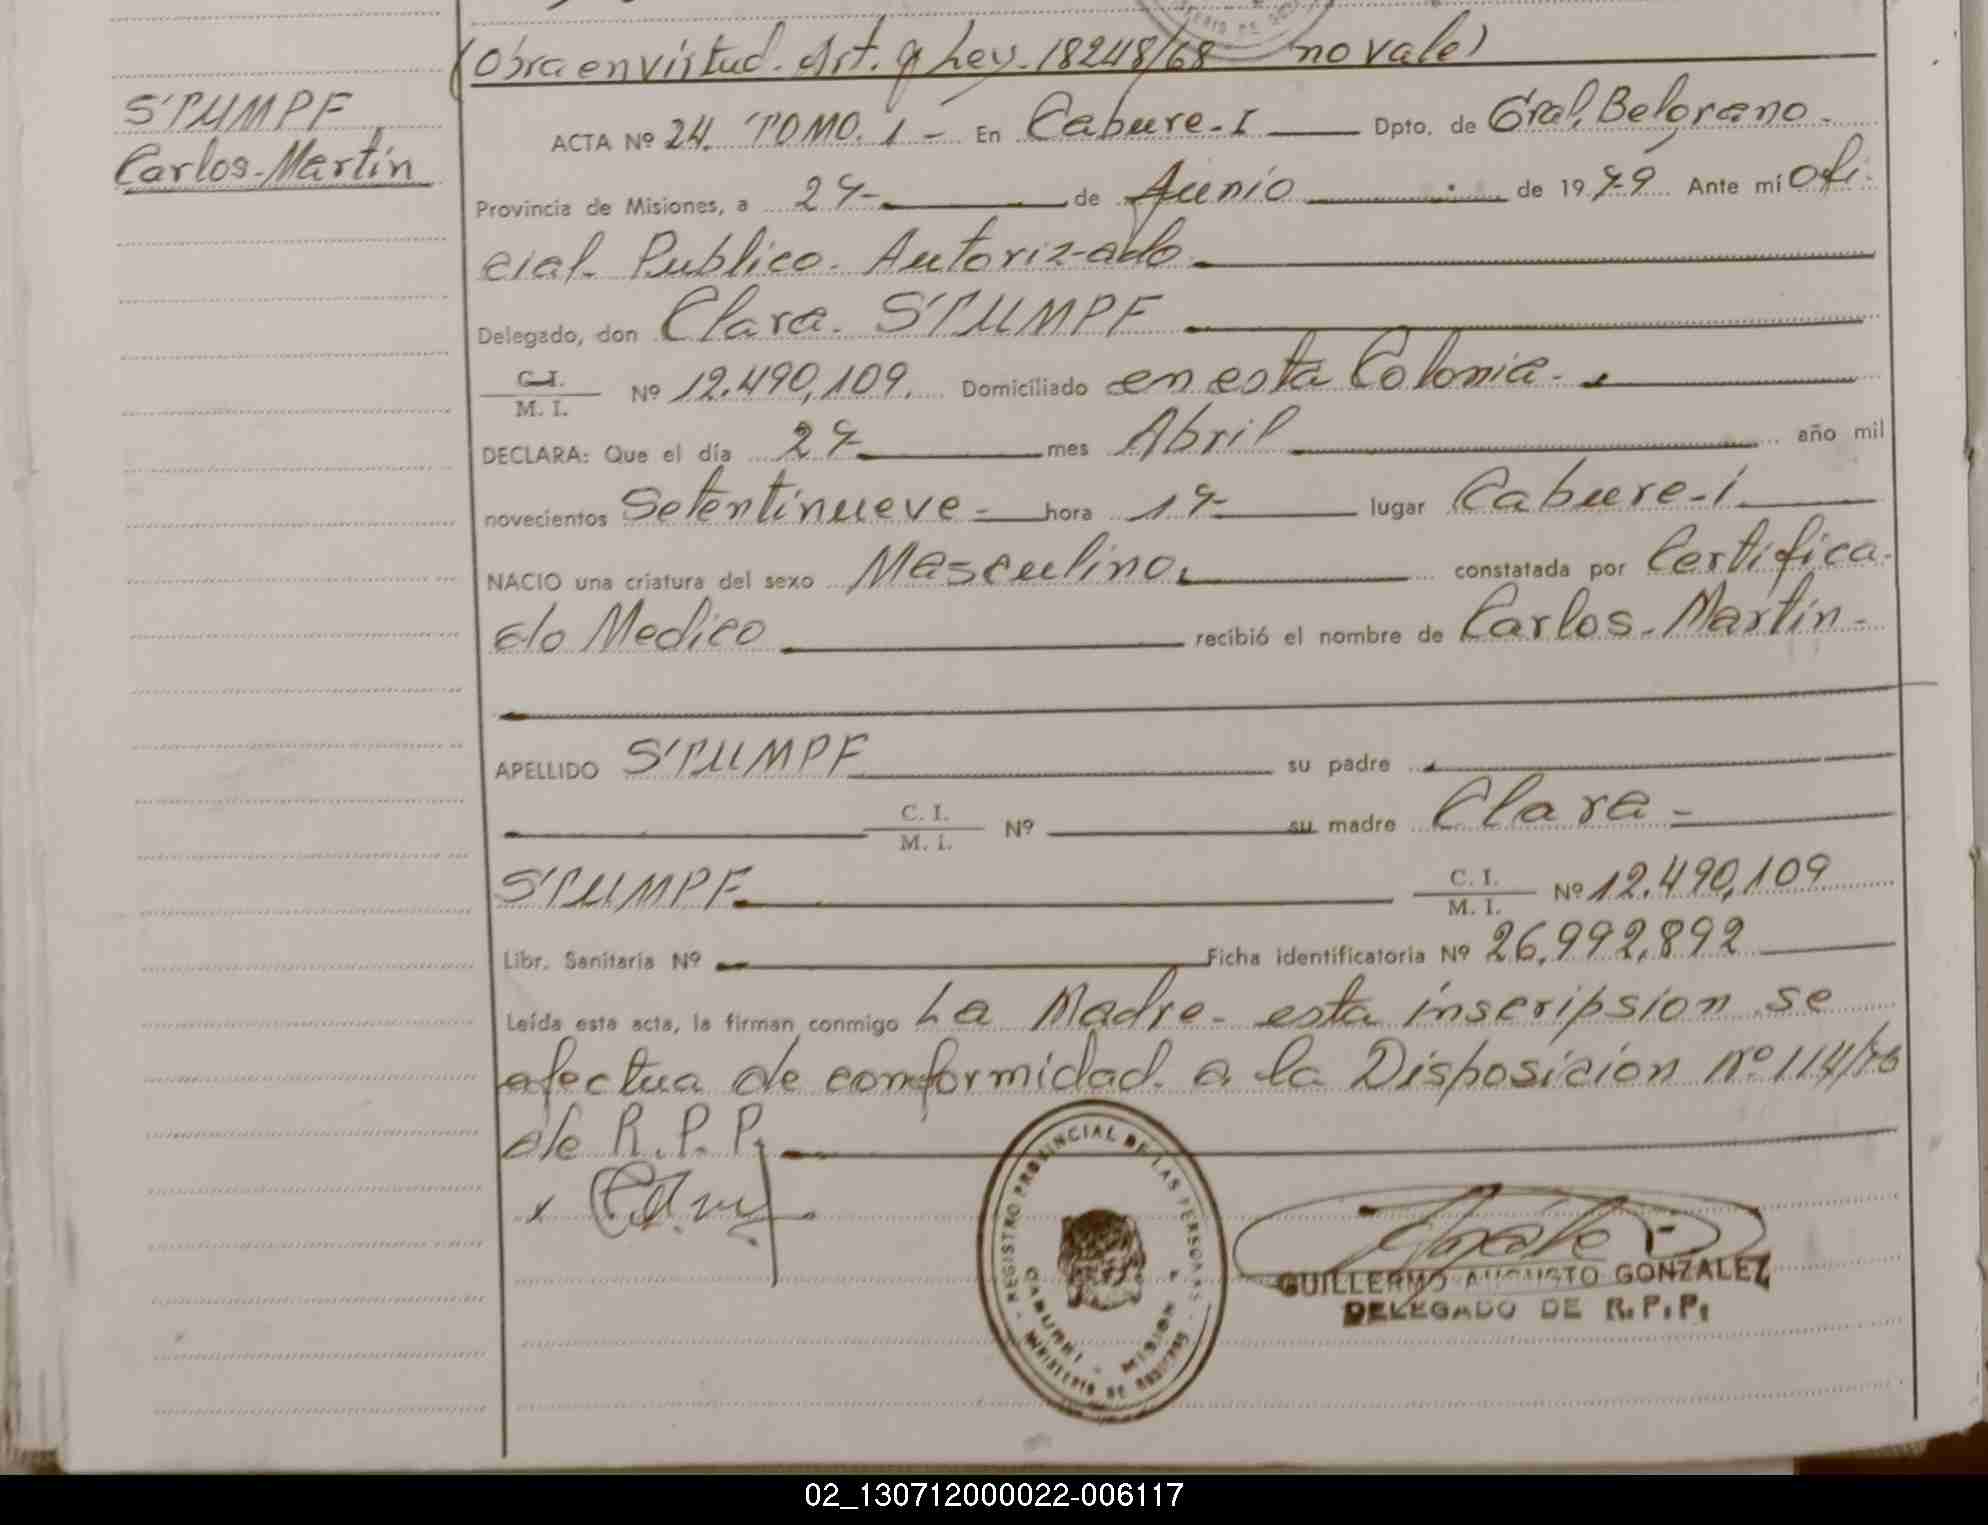 (Obra en virtud. Art. 9 Ley. 18248/68 no vale)
STUMPF
Carlos-Martín
ACTA Nº 24. TOMO. 1 - En Cabure-I Dpto. de Gral. Belgrano -
Provincia de Misiones, a 27- de Junio de 1979 Ante mí Ofi-
cial- Publico. Autorizado
Delegado, don Clara. STUMPF
C.I. / M. I. Nº 12.490,109. Domiciliado en esta Colonia-
DECLARA: Que el día 27 mes Abril año mil
novecientos Setentinueve - hora 17- lugar Cabure-i
NACIO una criatura del sexo Masculino constatada por Certifica-
do Medico recibió el nombre de Carlos-Martín-
APELLIDO STUMPF su padre
C. I. / M. I. Nº su madre Clara -
STUMPF C. I. / M. I. Nº 12.490,109
Libr. Sanitaria Nº Ficha identificatoria Nº 26,992,892
Leída esta acta, la firman conmigo La Madre- esta inscripsion se
efectua de conformidad. a la Disposicion Nº 114/76
de R.P.P.
REGISTRO PROVINCIAL DE LAS PERSONAS
MINISTERIO DE
GUILLERMO AUGUSTO GONZALEZ
DELEGADO DE R.P.P.
02_130712000022-006117